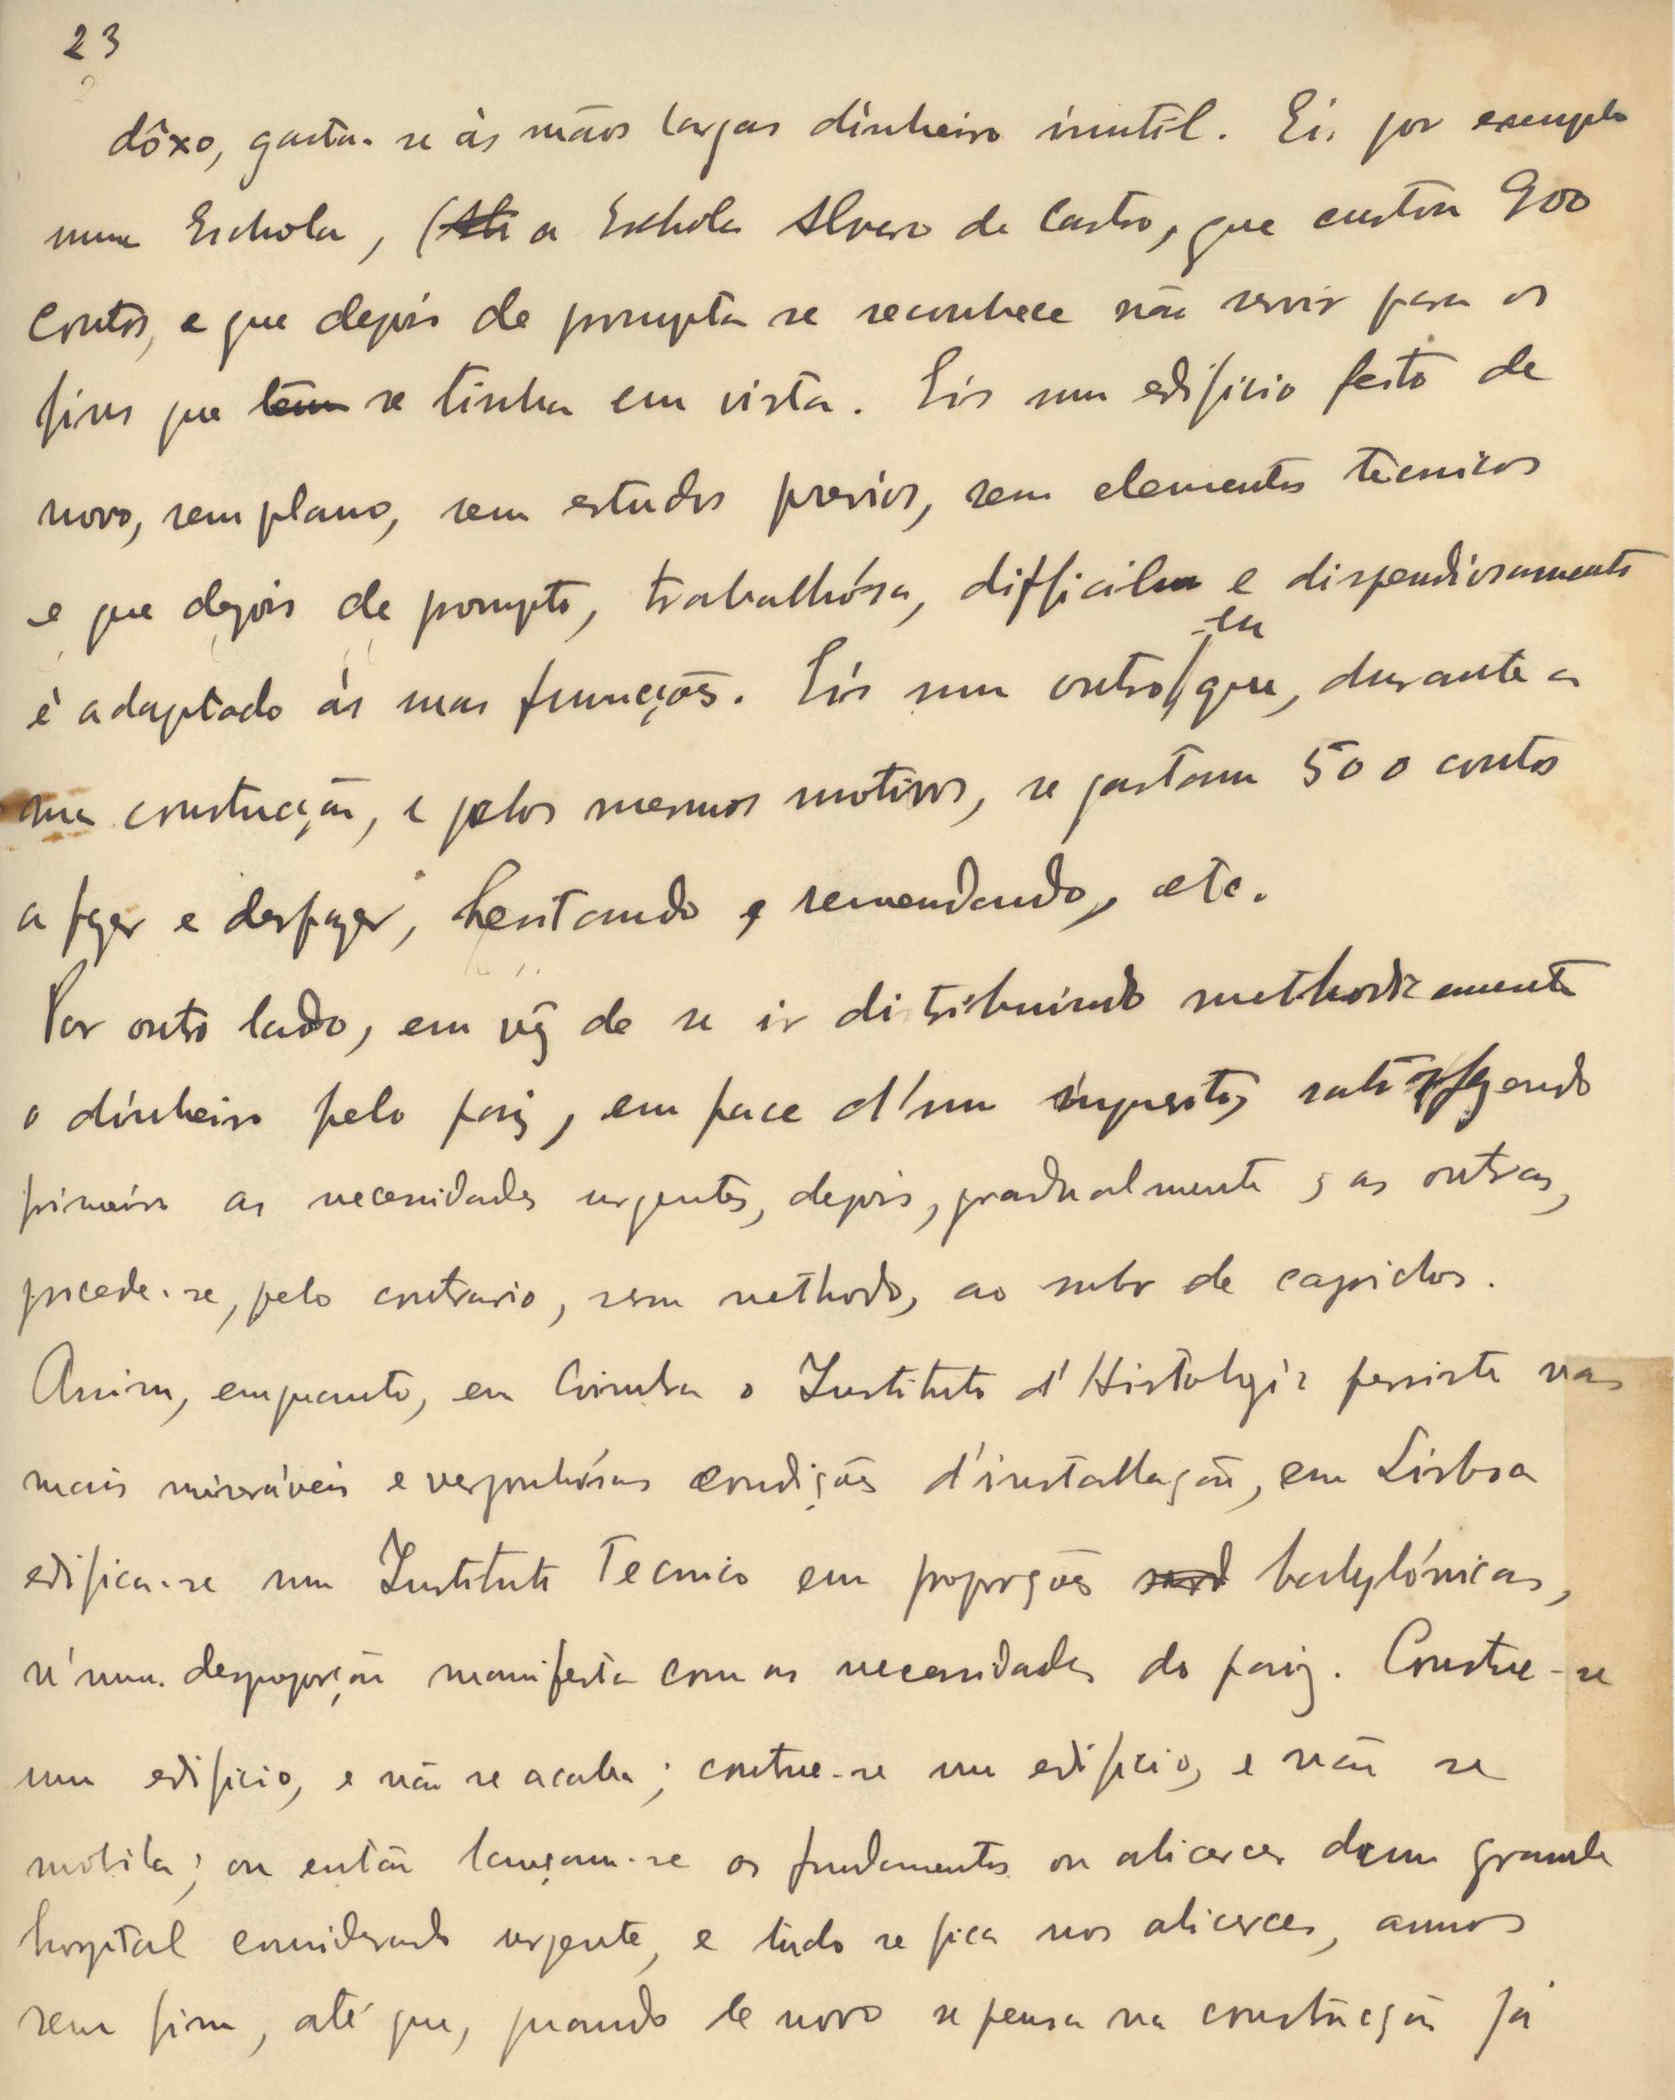 23
dôxo, gasta-se às mãos largas dinheiro inutil. Eis por exemplo
uma Eschola, (a Eschola Alvaro de Castro, que custou 900
contos, e que depois de prompta se reconhece não servir para os
fins que se tinha em vista. Eis um edificio feito de
novo, sem plano, sem estudos previos, sem elementos tècnicos
e que depois de prompto, trabalhósa, difficil e dispendiosamente
é adaptado ás suas funcções. Eis um outro em que, durante a
sua construcção, e pelos mesmos motivos, se gastam 500 contos
a fazer e desfazer, hesitando e remendando, etc.
Por outro lado, em vêz de se ir distribuindo methodicamente
o dinheiro pelo paiz, em face d'um inquerito, satisfazendo
primeiro as necessidades urgentes, depois, gradualmente, as outras,
procede-se, pelo contrario, sem methodo, ao sabor de caprichos.
Assim, emquanto, em Coimbra o Instituto d'Histologia persiste nas
mais miseráveis e vergonhósas condições d'installação, em Lisboa
edifica-se um Instituto Tecnico em proporções babylónicas,
n'uma desproporção manifesta com as necessidades do paiz. Constroe-se
um edificio, e não se acaba; constroe-se um edificio, e não se
mobila; ou então lançam-se os fundamentos ou alicerces dum grande
hospital considerado urgente, e tudo se fica nos alicerces, annos
sem fim, até que, quando de novo se pensa na construcção já